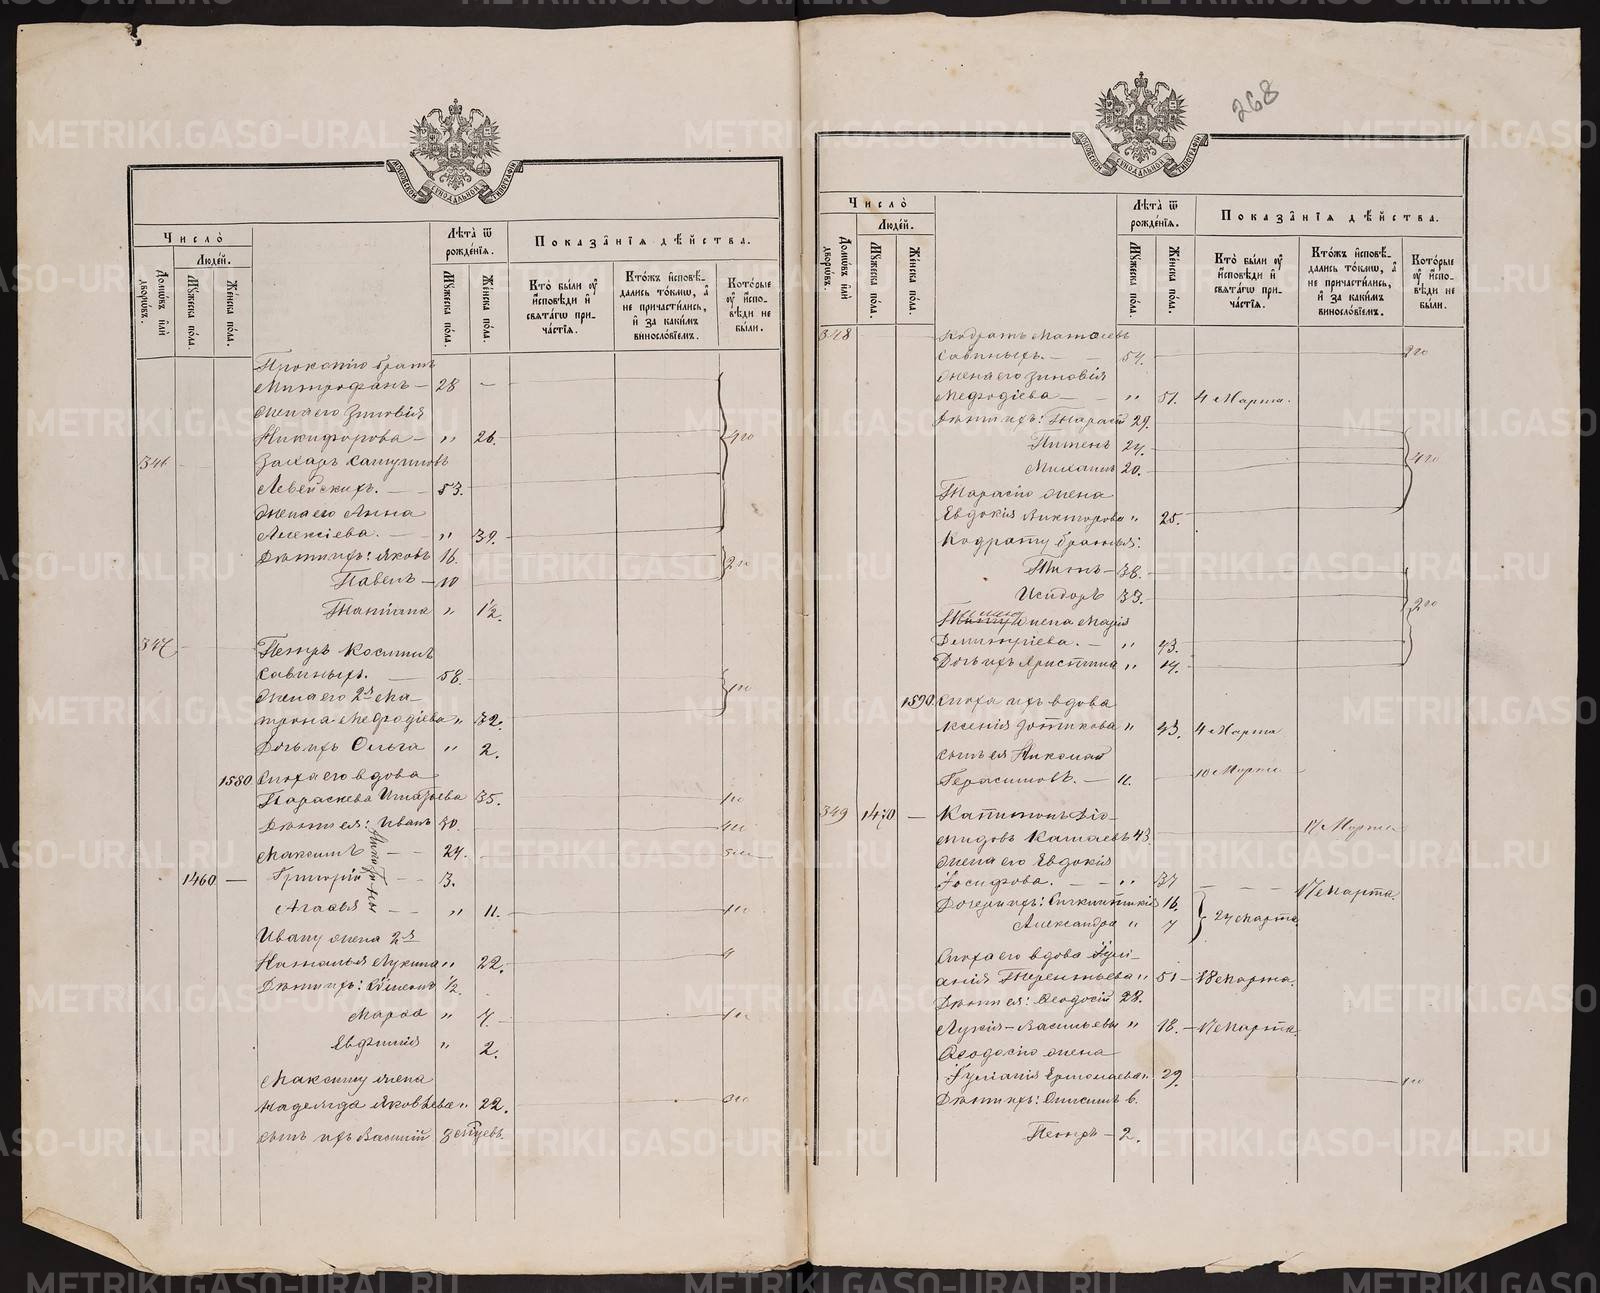 МОСКОВСКОЙ СѴНОДАЛЬНОЙ ТИПОГРАФІИ
Число̀
Людей.
Домѡвъ и҆лѝ дворѡвъ.
Мꙋжеска пола.
Же́нска пола.
Лѣта̀ ѿ рожде́нїѧ.
Мꙋжеска пола.
Же́нска пола.
Показа̑нїѧ дѣ́йства.
Кто̀ были ᲂу҆
и҆сповѣди и҆
свѧта́гѡ при-
ча́стїѧ.
Кто́жъ и҆сповѣ-
дались то́кмѡ, а҆
не причасти́лись,
и҆ за каки́мъ
винослόвїемъ.
Кото́рые
ᲂу҆ и҆спо-
вѣди не
бы́ли.
Прокопію братъ
Митрофанъ — 28 —
жена его Зиновія
Никифорова — " 26.
346 Захаръ
Левейскихъ. — 53.
жена его Анна
Алексіева. — " 39.
Дѣти ихъ: Яковъ 16.
Павелъ — 10
Татіана " 1½.
347 Петръ Косминъ
Савиныхъ. — 58.
жена его 2я Ма-
трона Меѳодіева " 32.
Дочь ихъ Ольга " 2.
1580 Сноха его вдова
Параскева Игнатьева 55.
Дѣти ея: Иванъ 30.
Максимъ — 24.
1460 — Григорій — 3.
Агаѳья — " 11.
Ивану жена 2я
Наталья Лукина " 22.
Дѣти ихъ: ½.
Марѳа " 7.
Евфимія " 2.
Максиму жена
Надежда Яковлева " 22.
сынъ ихъ Василій
268
Число̀
Людей.
Домѡвъ и҆лѝ дворѡвъ.
Мꙋжеска пола.
Же́нска пола.
Лѣта̀ ѿ рожде́нїѧ.
Мꙋжеска пола.
Же́нска пола.
Показа̑нїѧ дѣ́йства.
Кто̀ были ᲂу҆
и҆сповѣди и҆
свѧта́гѡ при-
ча́стїѧ.
Кто́жъ и҆сповѣ-
дались то́кмѡ, а҆
не причасти́лись,
и҆ за каки́мъ
винослόвїемъ.
Кото́рые
ᲂу҆ и҆спо-
вѣди не
бы́ли.
348 Кодратъ Матѳіевъ
Савиныхъ. — 54.
жена его Зиновія
Меѳодіева — " 51. 4 Марта.
Дѣти ихъ: Тарасій 29.
Пименъ 24.
Михаилъ 20.
Тарасію жена
Евдокія Викторова " 25.
Кодрату братья:
Титъ — 38.
Исидоръ 33.
жена Марія
Димитріева. — " 43.
Дочь ихъ Христина " 14.
1590. Сноха ихъ вдова
Ксенія Зотикова " 43. 4 Марта
сынъ ея Николай
Герасимовъ. — 11. 10 Марта
349 1470 — Капитонъ Діо-
мидовъ Катаевъ 43. 17 Марта
жена его Евдокія
Іосифова. — " 37 17 Марта.
Дочери ихъ: 16.
Александра " 7 24 Марта.
Сноха его вдова Іулі-
анія Терентьева " 51 — 18 Марта.
Дѣти ея: Ѳеодосій 28.
Лукія — Васильевы " 18. — 17 Марта
Ѳеодосію жена
Іуліанія Ермолаева " 29.
Дѣти ихъ: Анисимъ 6.
Петръ — 2.
METRIKI.GASO-URAL.RU